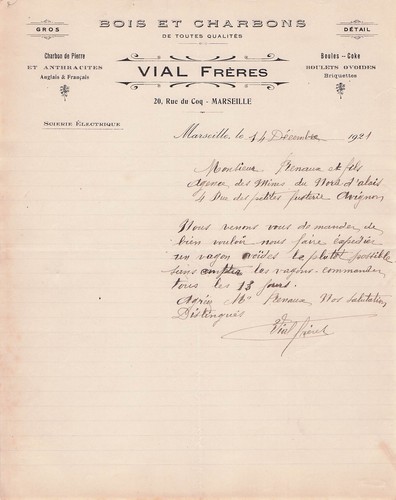 BOIS ET CHARBONS
DE TOUTES QUALITÉS
GROS
DÉTAIL
Charbon de Pierre
ET ANTHRACITES
Anglais & Français
Boules - Coke
BOULETS OVOÏDES
Briquettes
VIAL FRÈRES
20, Rue du Coq - MARSEILLE
SCIERIE ÉLECTRIQUE
Marseille, le 14 Décembre 1921
Monsieur Renaux et fils
Agence des Mines du Nord d'alais
4 Rue des petites fusterie Avignon
Nous venons vous demander de
bien vouloir nous faire expédier
un vagon ovoïdes la plutot possible
sans compter les vagons commander
tous les 15 jours.
Agrée Mr Renaux Nos salutation
Distingués
Vial frères